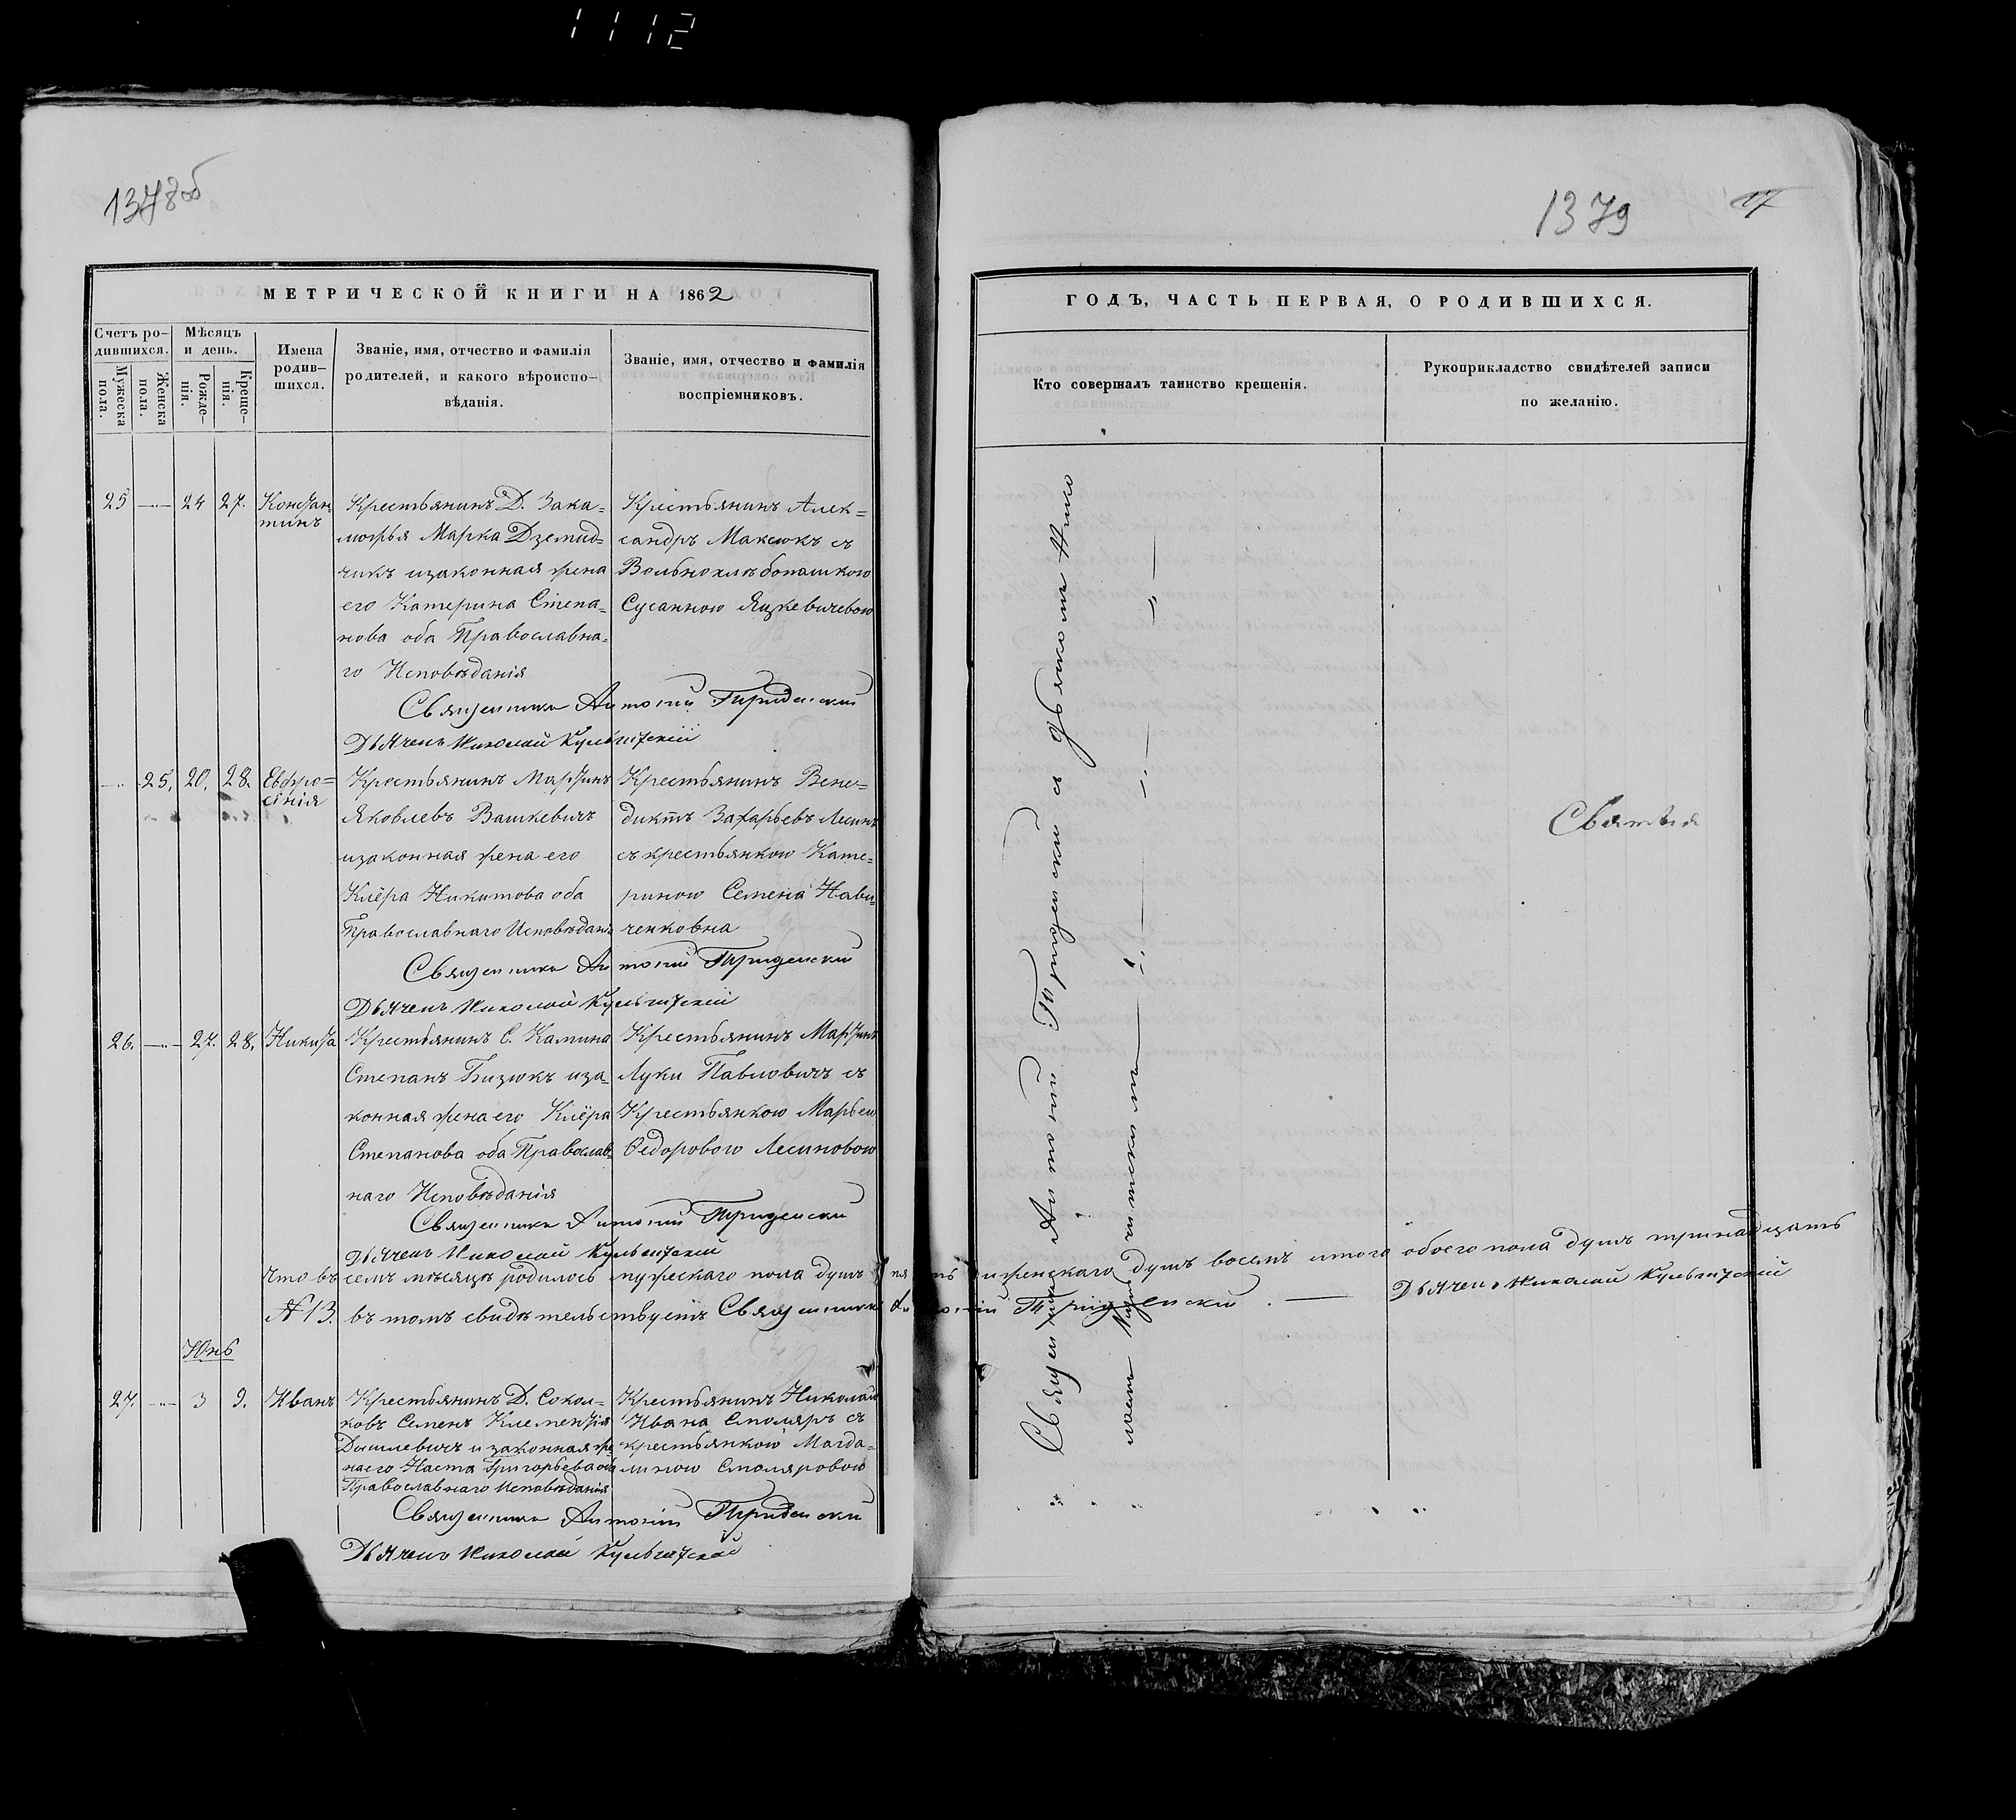 1112
1378об
МЕТРИЧЕСКОЙ КНИГИ НА 1862
Счетъ ро-
дившихся.
Мужеска
пола.
Женска
пола.
Мѣсяцъ
и день.
Рожде-
нія.
Креще-
нія.
Имена
родив-
шихся.
Званіе, имя, отчество и фамилія
родителей, и какого вѣроиспо-
вѣданія.
Званіе, имя, отчество и фамилія
воспріемниковъ.
25 24 27. Констан
тинъ
Крестьянинъ Д. Зака-
морья Марка Дземид-
чикъ изаконная жена
его Катерина Степа-
нова оба Православна-
го Исповѣданія
Крестьянинъ Алек-
сандръ Максюкъ съ
Сусанною Яцкевичевою
Священникъ Антоній Тризденскій
Дьячекъ Николай
25. 20. 28. Евфро-
сінія
Крестьянинъ Мартинъ
Яковлевъ Вашкевичъ
изаконная жена его
Клёра Никитова оба
Православнаго Исповѣдані
Крестьянинъ Вене-
диктъ Захарьевъ Лесинъ
съ крестьянкою Кате-
риною Семена Нови-
ченковна
Священникъ Антоній
Дьячекъ Николай
26. 27. 28. Никита
Крестьянинъ С. Камина
Степанъ Бизюкъ иза-
конная жена его Клёра
Степанова оба Православ-
наго Исповѣданія
Крестьянинъ Мартинъ
Луки Павловичъ съ
Крестьянкою Марьею
Ѳедоровою Лесиновою
Священникъ Антоній
Дьячекъ Николай
Что въ семъ мѣсяцѣ родилось мужескаго пола душъ пять иженскаго душъ восемь итого обоего пола душъ тринадцать
№ 13. въ томъ свидѣтельствуетъ Священникъ Антоній
Дьячекъ Николай
Юнь
27. 3 9. Иванъ
Крестьянинъ Д. Сокол-
ковъ Семенъ Клементія
Дашлевичъ и законная же
на его Наста Григорьева оба
Православнаго Исповѣданія
Крестьянинъ Николай
Ивана Столяръ съ
крестьянкою Магда-
линою Столяровою
Священникъ Антоній
Дьячекъ Николай
1379
17
ГОДЪ, ЧАСТЬ ПЕРВАЯ, О РОДИВШИХСЯ.
Кто совершалъ таинство крещенія.
Рукоприкладство свидѣтелей записи
по желанію.
Священникъ Антоній съ дьякомъ Нико
лаем